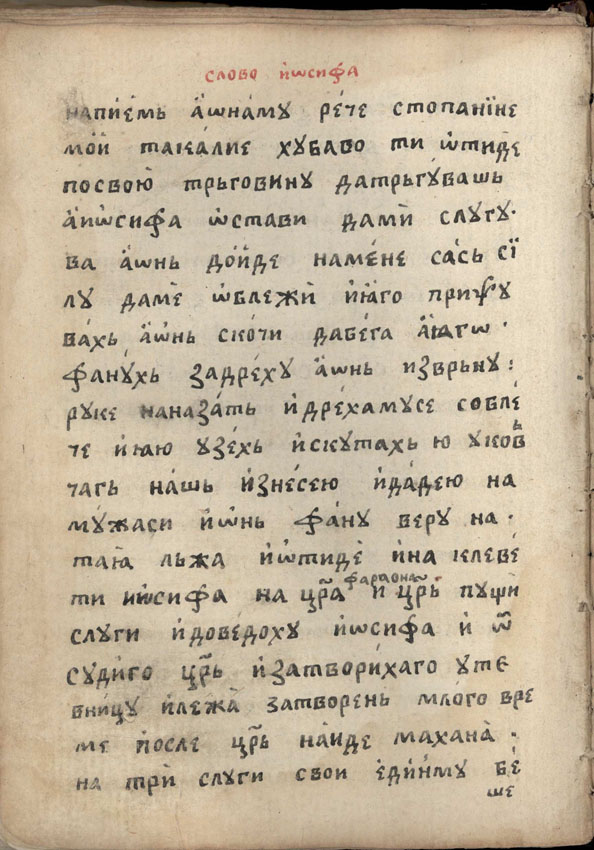 слово іѡсифа
напїемь аѡнаму рече стопанїине
мои такалие хубаво ти ѿтиде
посвою трьговину датрьгувашь
аиѡсифа ѡстави дами слугу·
ва аѡнь доиде намене сась сї
лу даме ѡблежи иꙗго приѱу
вахь аѡнь скочи дабега аꙗгѡ·
фанухь задреху аѡнь изврьну:
руке наназать идрехамусе собле
че иꙗю узехь искутахь ю уковь
чагь нашь изнесею идадею на
мужаси иѡнь фану веру на·
таꙗ льжа иѿтиде ина клеве
ти иѡсифа на цр҃а фараѡна и цр҃ь пущи
слуги идоведоху иѡсифа и ѿ
судиго цр҃ь изатворихаго уте
вницу илежа затворень млого вре
ме после цр҃ь наиде махана·
на три слуги свои единму бе
ше